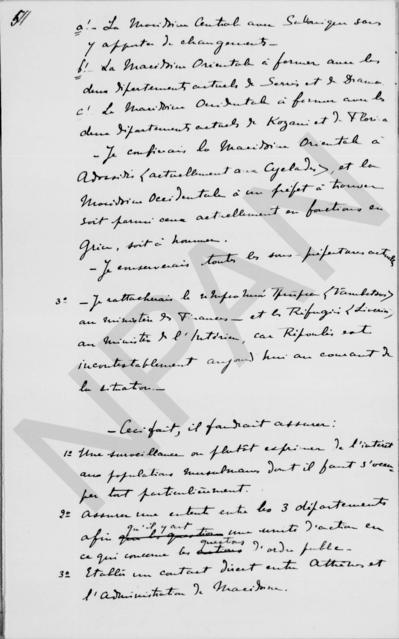 5//
a! - La Macédoine Central avec Salonique sans
y apporter de changements -
b! La Macédoine Orientale à former avec les
deux départements actuels de Serrès et de Drama.
c! La Macédoine Occidentale à former avec les
deux départements actuels de Kozani et de Florina
- Je confierais la Macédoine Orientale à
Adossidis (actuellement aux Cyclades), et la
Macédoine Occidentale à un préfet à trouver
soit parmi ceux actuellement en fonctions en
Grèce, soit à nommer.
- Je conserverais toutes les sous-préfectures actuelles
3° - Je rattacherais le
au ministère des Finances - et les Réfugiés
au Ministre de l'Intérieur, car Ripoulis est
incontestablement aujourd'hui au courant de
la situation. -
- Ceci fait, il faudrait assurer:
1° Une surveillance ou plutôt exprimer de l'intérêt
aux populations musulmanes dont il faut s'occu
per tout particulièrement.
2° Assurer une entente entre les 3 départements
afin qu'il y ait une unité d'action en
ce qui concerne les questions d'ordre public -
3° Etablir un contact direct entre Athènes et
l'Administration de Macédoine.
NPAN